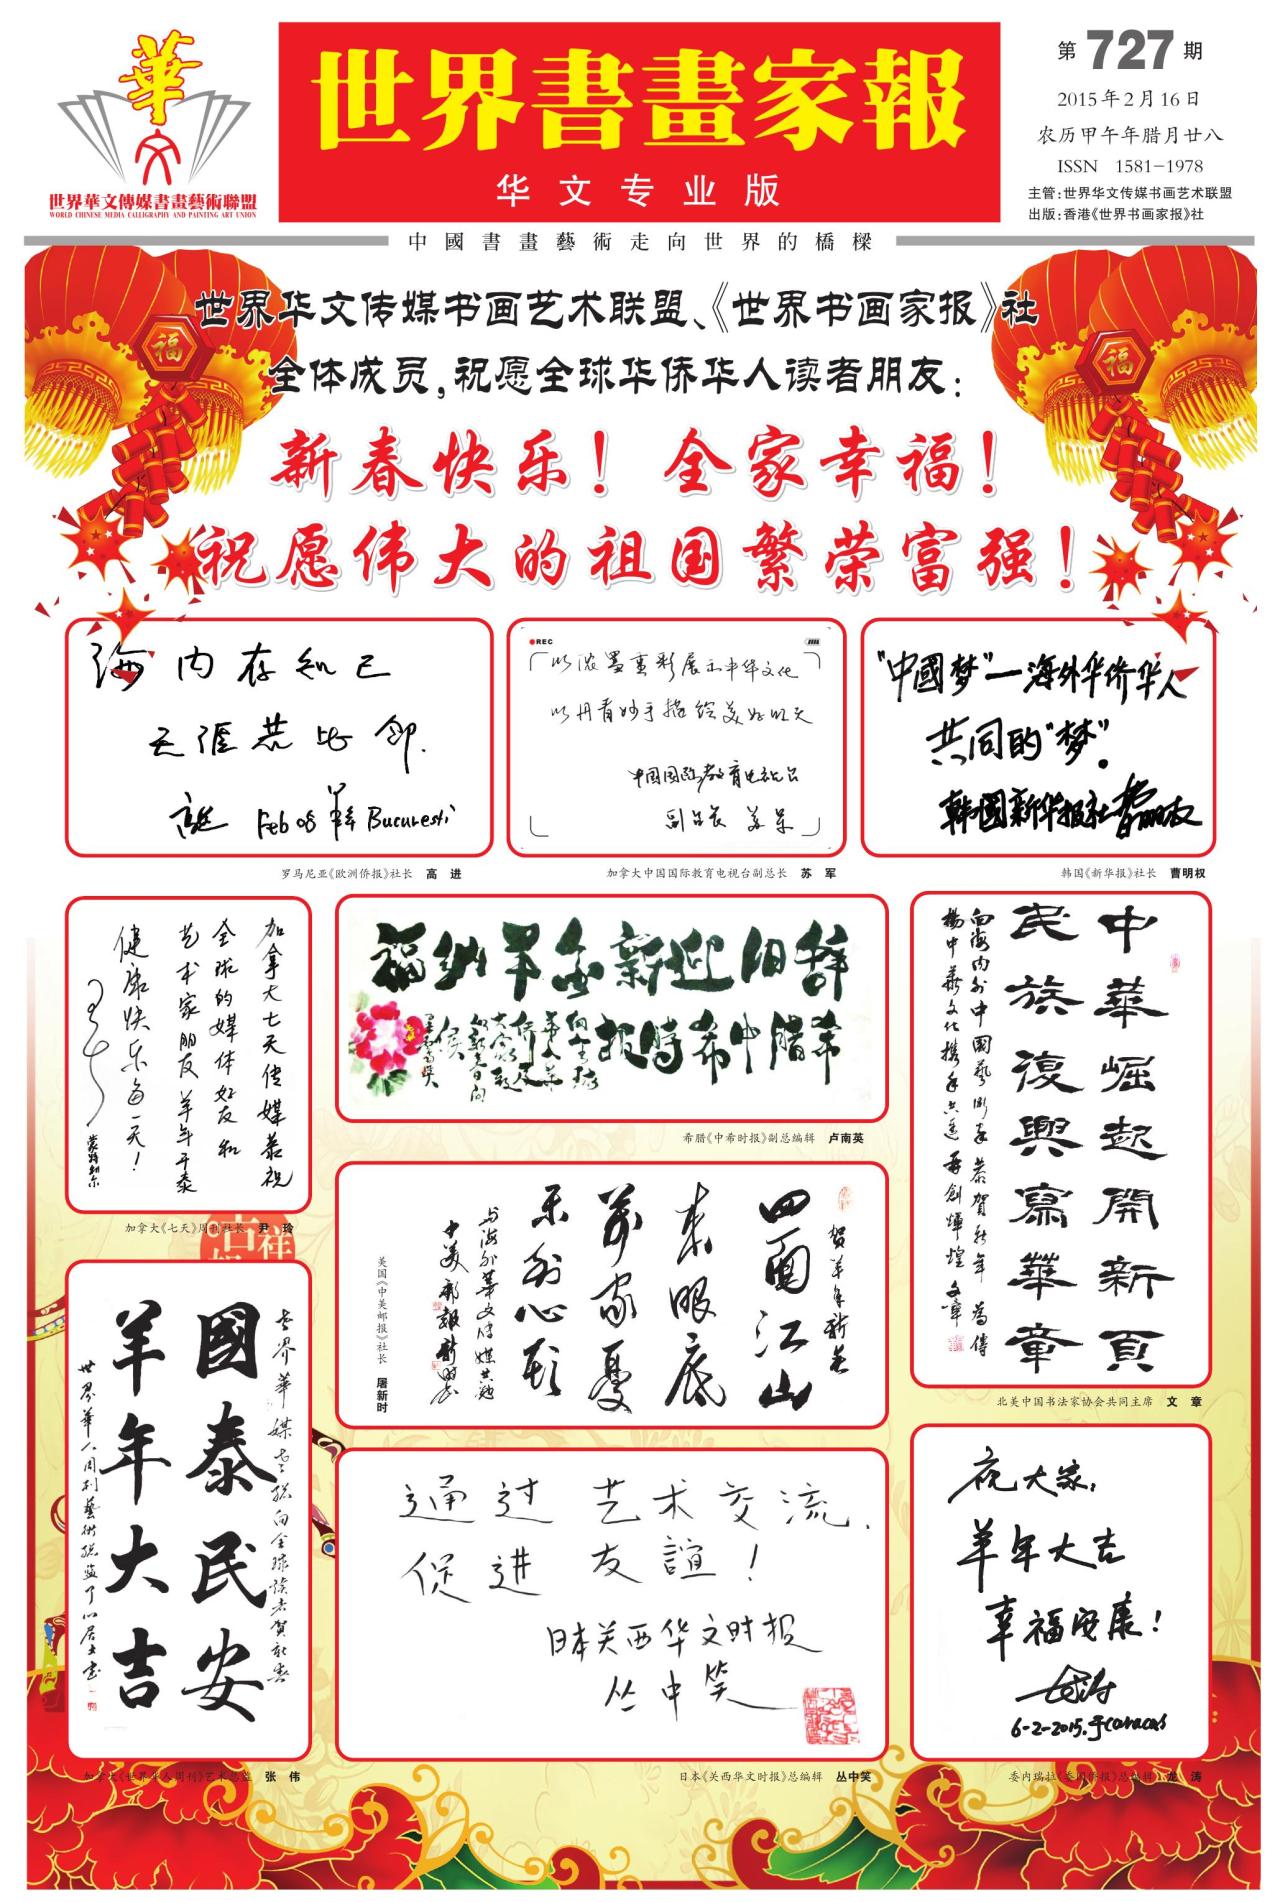 華文
世界華文傳媒書畫藝術聯盟
WORLD CHINESE MEDIA CALLIGRAPHY AND PAINTING ART UNION
世界書畫家報
华文专业版
第727期
2015年2月16日
农历甲午年腊月廿八
ISSN 1581-1978
主管:世界华文传媒书画艺术联盟
出版:香港《世界书画家报》社
中國書畫藝術走向世界的橋樑
福
福
世界华文传媒书画艺术联盟、《世界书画家报》社
全体成员,祝愿全球华侨华人读者朋友:
新春快乐!全家幸福!
祝愿伟大的祖国繁荣富强!
海内存知己
天涯若比邻.
Feb 08 Bucuresti
罗马尼亚《欧洲侨报》社长 高进
REC
以浓墨重彩展示中华文化
以丹青妙手描绘美好明天
中国国际教育电视台
副台长 苏军
加拿大中国国际教育电视台副总长 苏军
"中國梦"—海外华侨华人
共同的"梦"。
韩国新华报社
韩国《新华报》社长 曹明权
加拿大七天传媒恭祝
全球的媒体好友和
艺术家朋友羊年平泰
健康快乐每一天!
加拿大《七天》周刊社长 尹玲
辞旧迎新金羊纳福
希腊中希時报
希腊《中希时报》副总编辑 卢南英
中華崛起開新頁
民族復興寫華章
向海内外中國藝術家恭賀新年為傳
揚中華文化攜手共進再創輝煌 文章
北美中国书法家协会共同主席 文章
賀羊年新春
四面江山
来眼底
万家忧
乐到心头
与海外華文传媒共勉
中美邮报新时
美国《中美邮报》社长 屠新时
吉祥
世界華媒書聯向全球读者贺新春
國泰民安
羊年大吉
世界華人周刊藝術總監
加拿大《世界华人周刊》艺术总监 张伟
通过艺术交流,
促进友誼!
日本关西华文时报
丛中笑
日本《关西华文时报》总编辑 丛中笑
祝大家,
羊年大吉
幸福安康!
6-2-2015.于Caracas
委内瑞拉《委国侨报》总编辑 龙涛